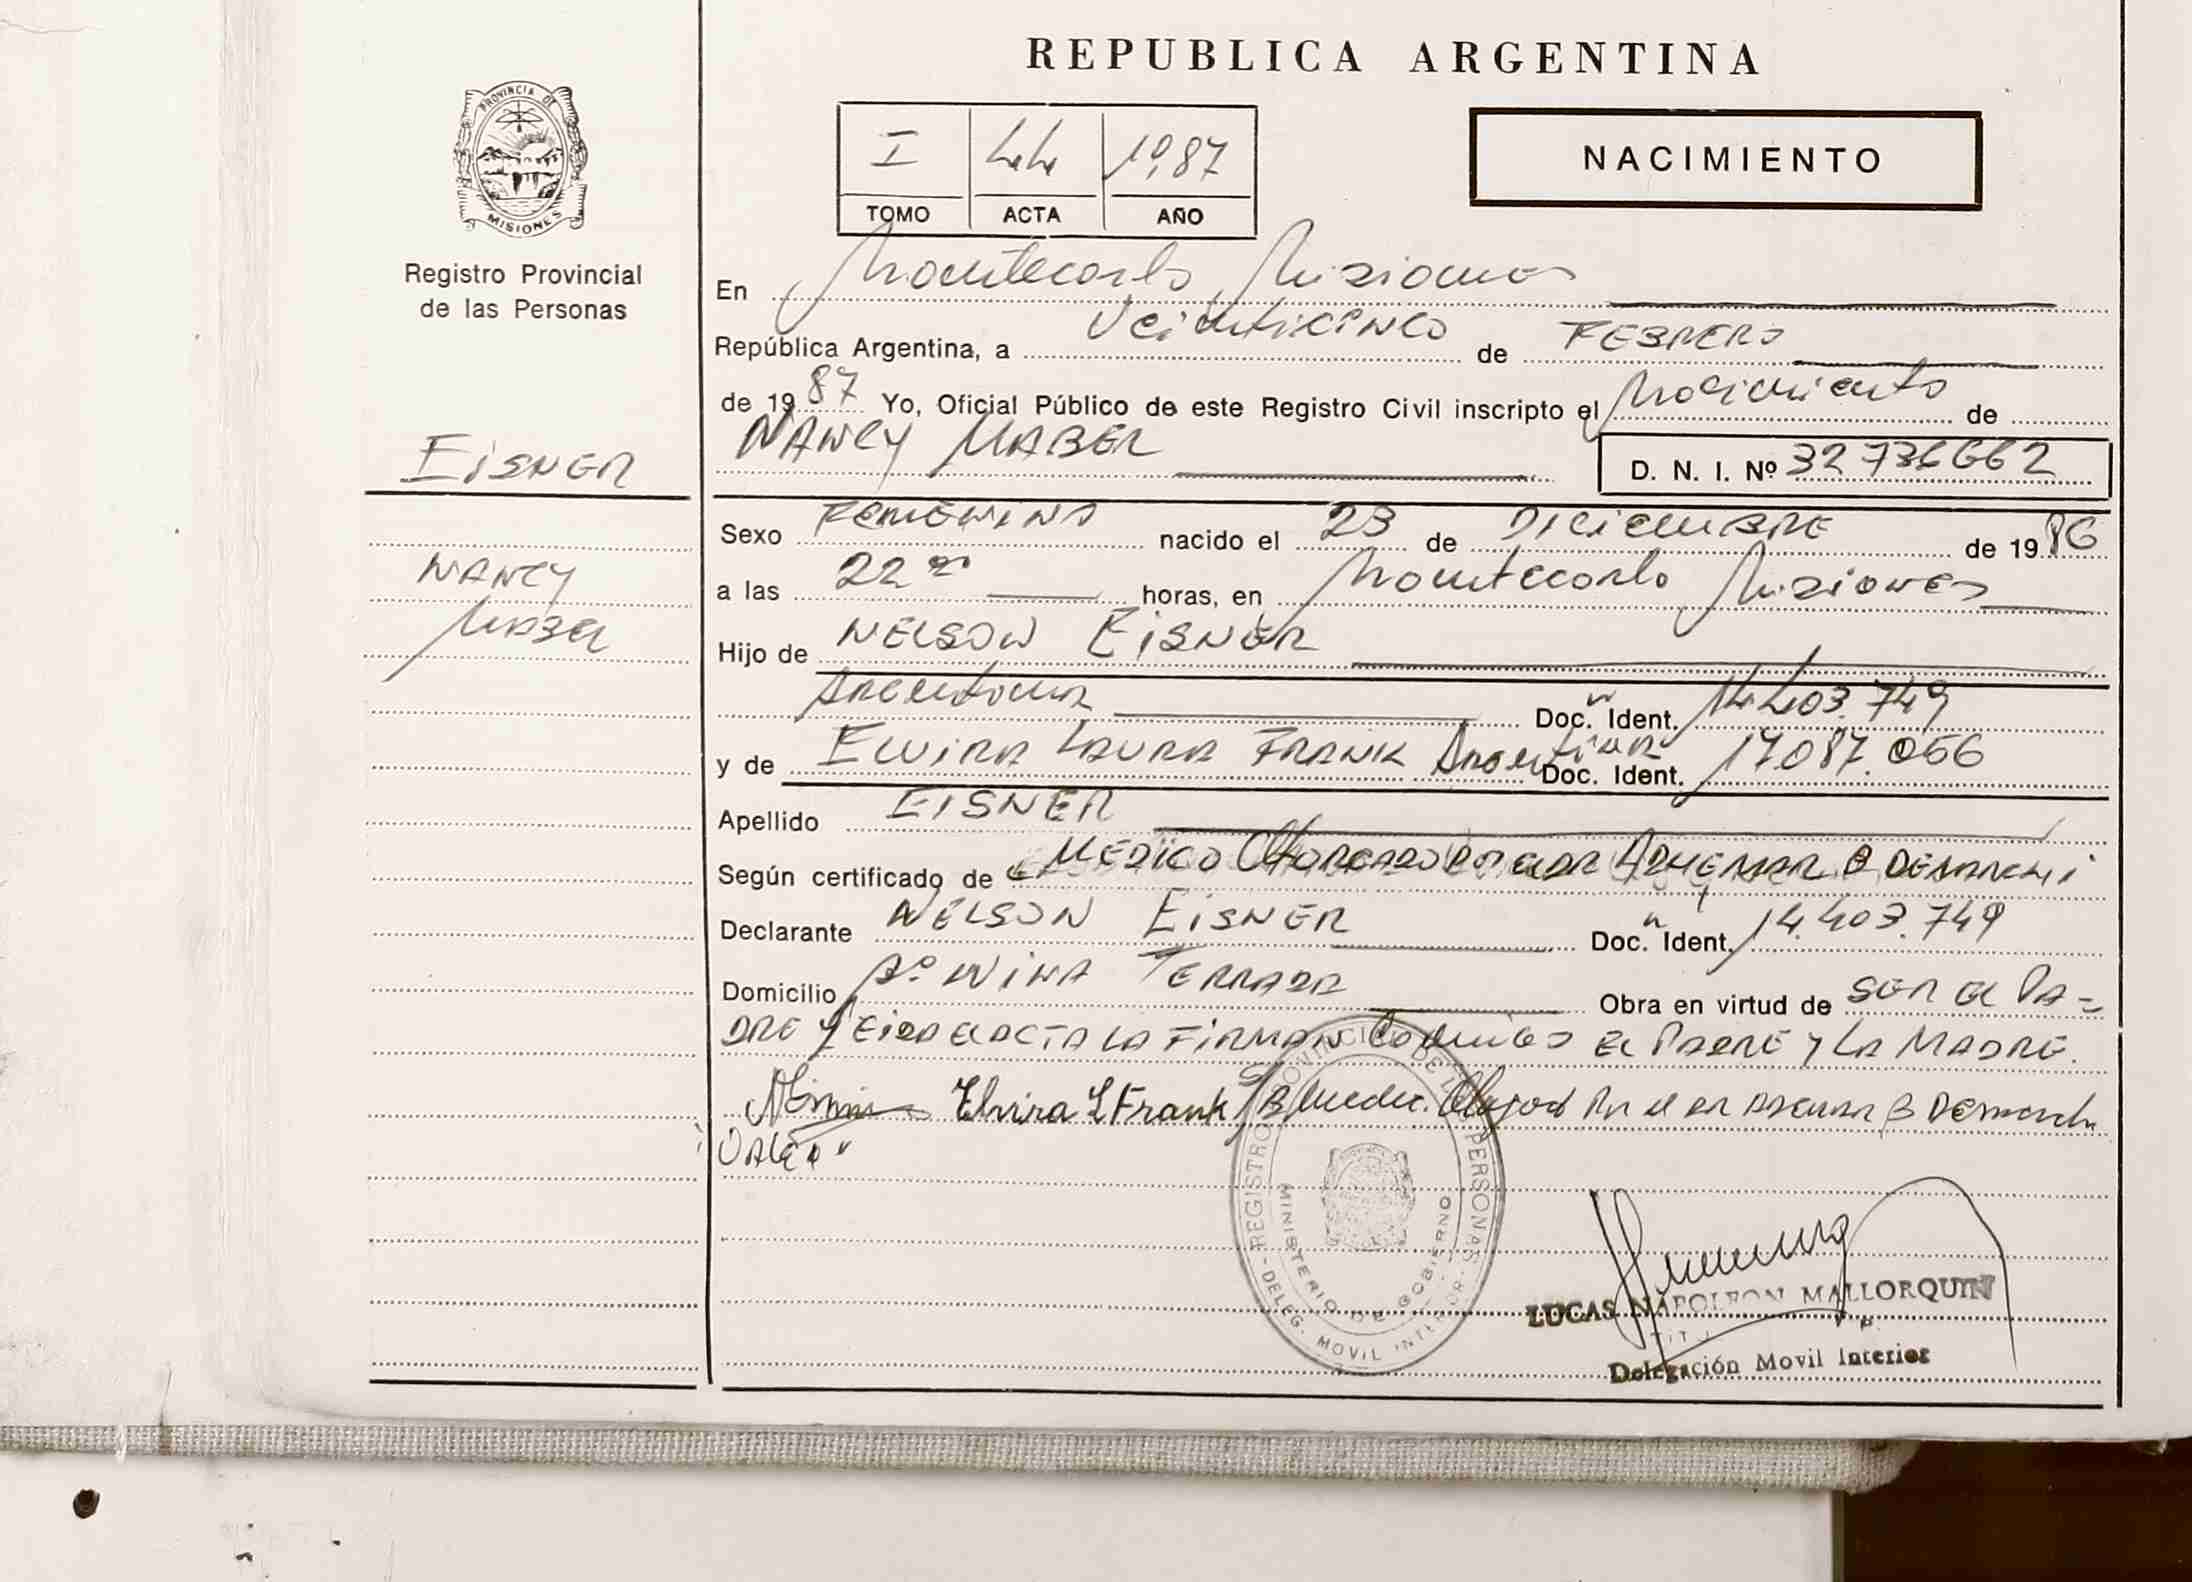 REPUBLICA ARGENTINA
PROVINCIA DE
MISIONES
Registro Provincial
de las Personas
I 44 1987
TOMO ACTA AÑO
NACIMIENTO
En Montecarlo, Misiones
República Argentina, a Veinticinco de FEBRERO
de 1987 Yo, Oficial Público de este Registro Civil inscripto el Nacimiento de
EISNER
NANCY MABEL
D. N. I. Nº 32736662
NANCY
MABEL
Sexo FEMENINO nacido el 23 de DICIEMBRE de 1986
a las 22 horas, en Montecarlo Misiones
Hijo de NELSON EISNER
Argentina Doc. Ident. 14.403.749
y de ELVIRA LAURA FRANK Argentina Doc. Ident. 17.087.066
Apellido EISNER
Según certificado de MEDICO Otorgado POR el DR ADHEMAR B DEMARCHI
Declarante NELSON EISNER Doc. Ident. 14.403.749
Domicilio Aº VIÑA TERRADA Obra en virtud de SER EL PA-
DRE y LEIDA EL ACTA LA FIRMAN Conmigo EL PADRE y LA MADRE.
Elvira L Frank S/B Medico. Otorgad Por el DR ADEMAR B DEMarchi
VALE"
REGISTRO PROVINCIAL DE LAS PERSONAS
MINISTERIO DE GOBIERNO
- DELEG. MOVIL INTERIOR -
LUCAS NAPOLEON MALLORQUIN
Delegación Movil Interior